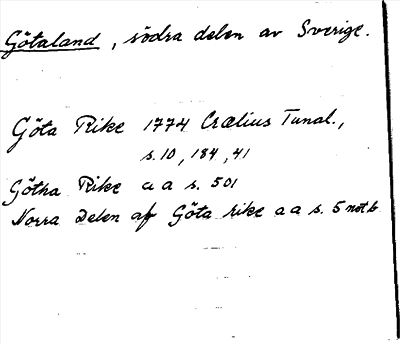 Götaland, södra delen av Sverige.
Göta Rike 1774 Crælius Tunal.,
s. 10, 184, 41
Götha Rike a a s. 501
Norra Delen af Göta rike a a s. 5 not b